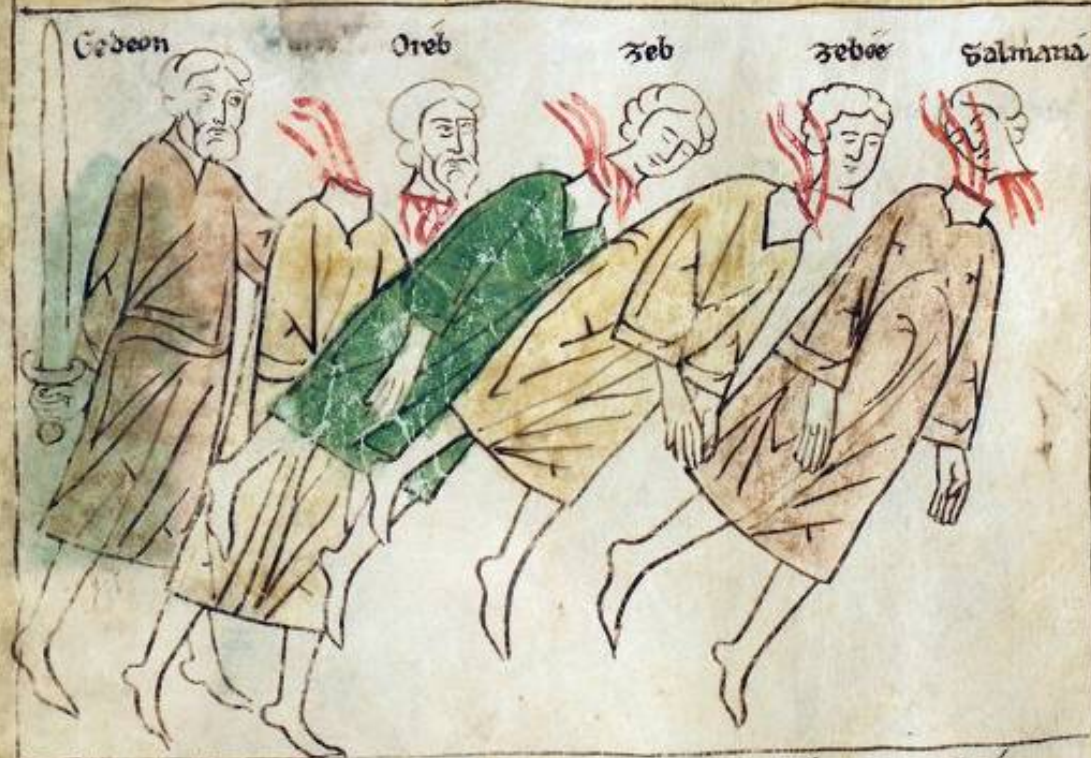 Gedeon Oreb Zeb Zebee Salmana